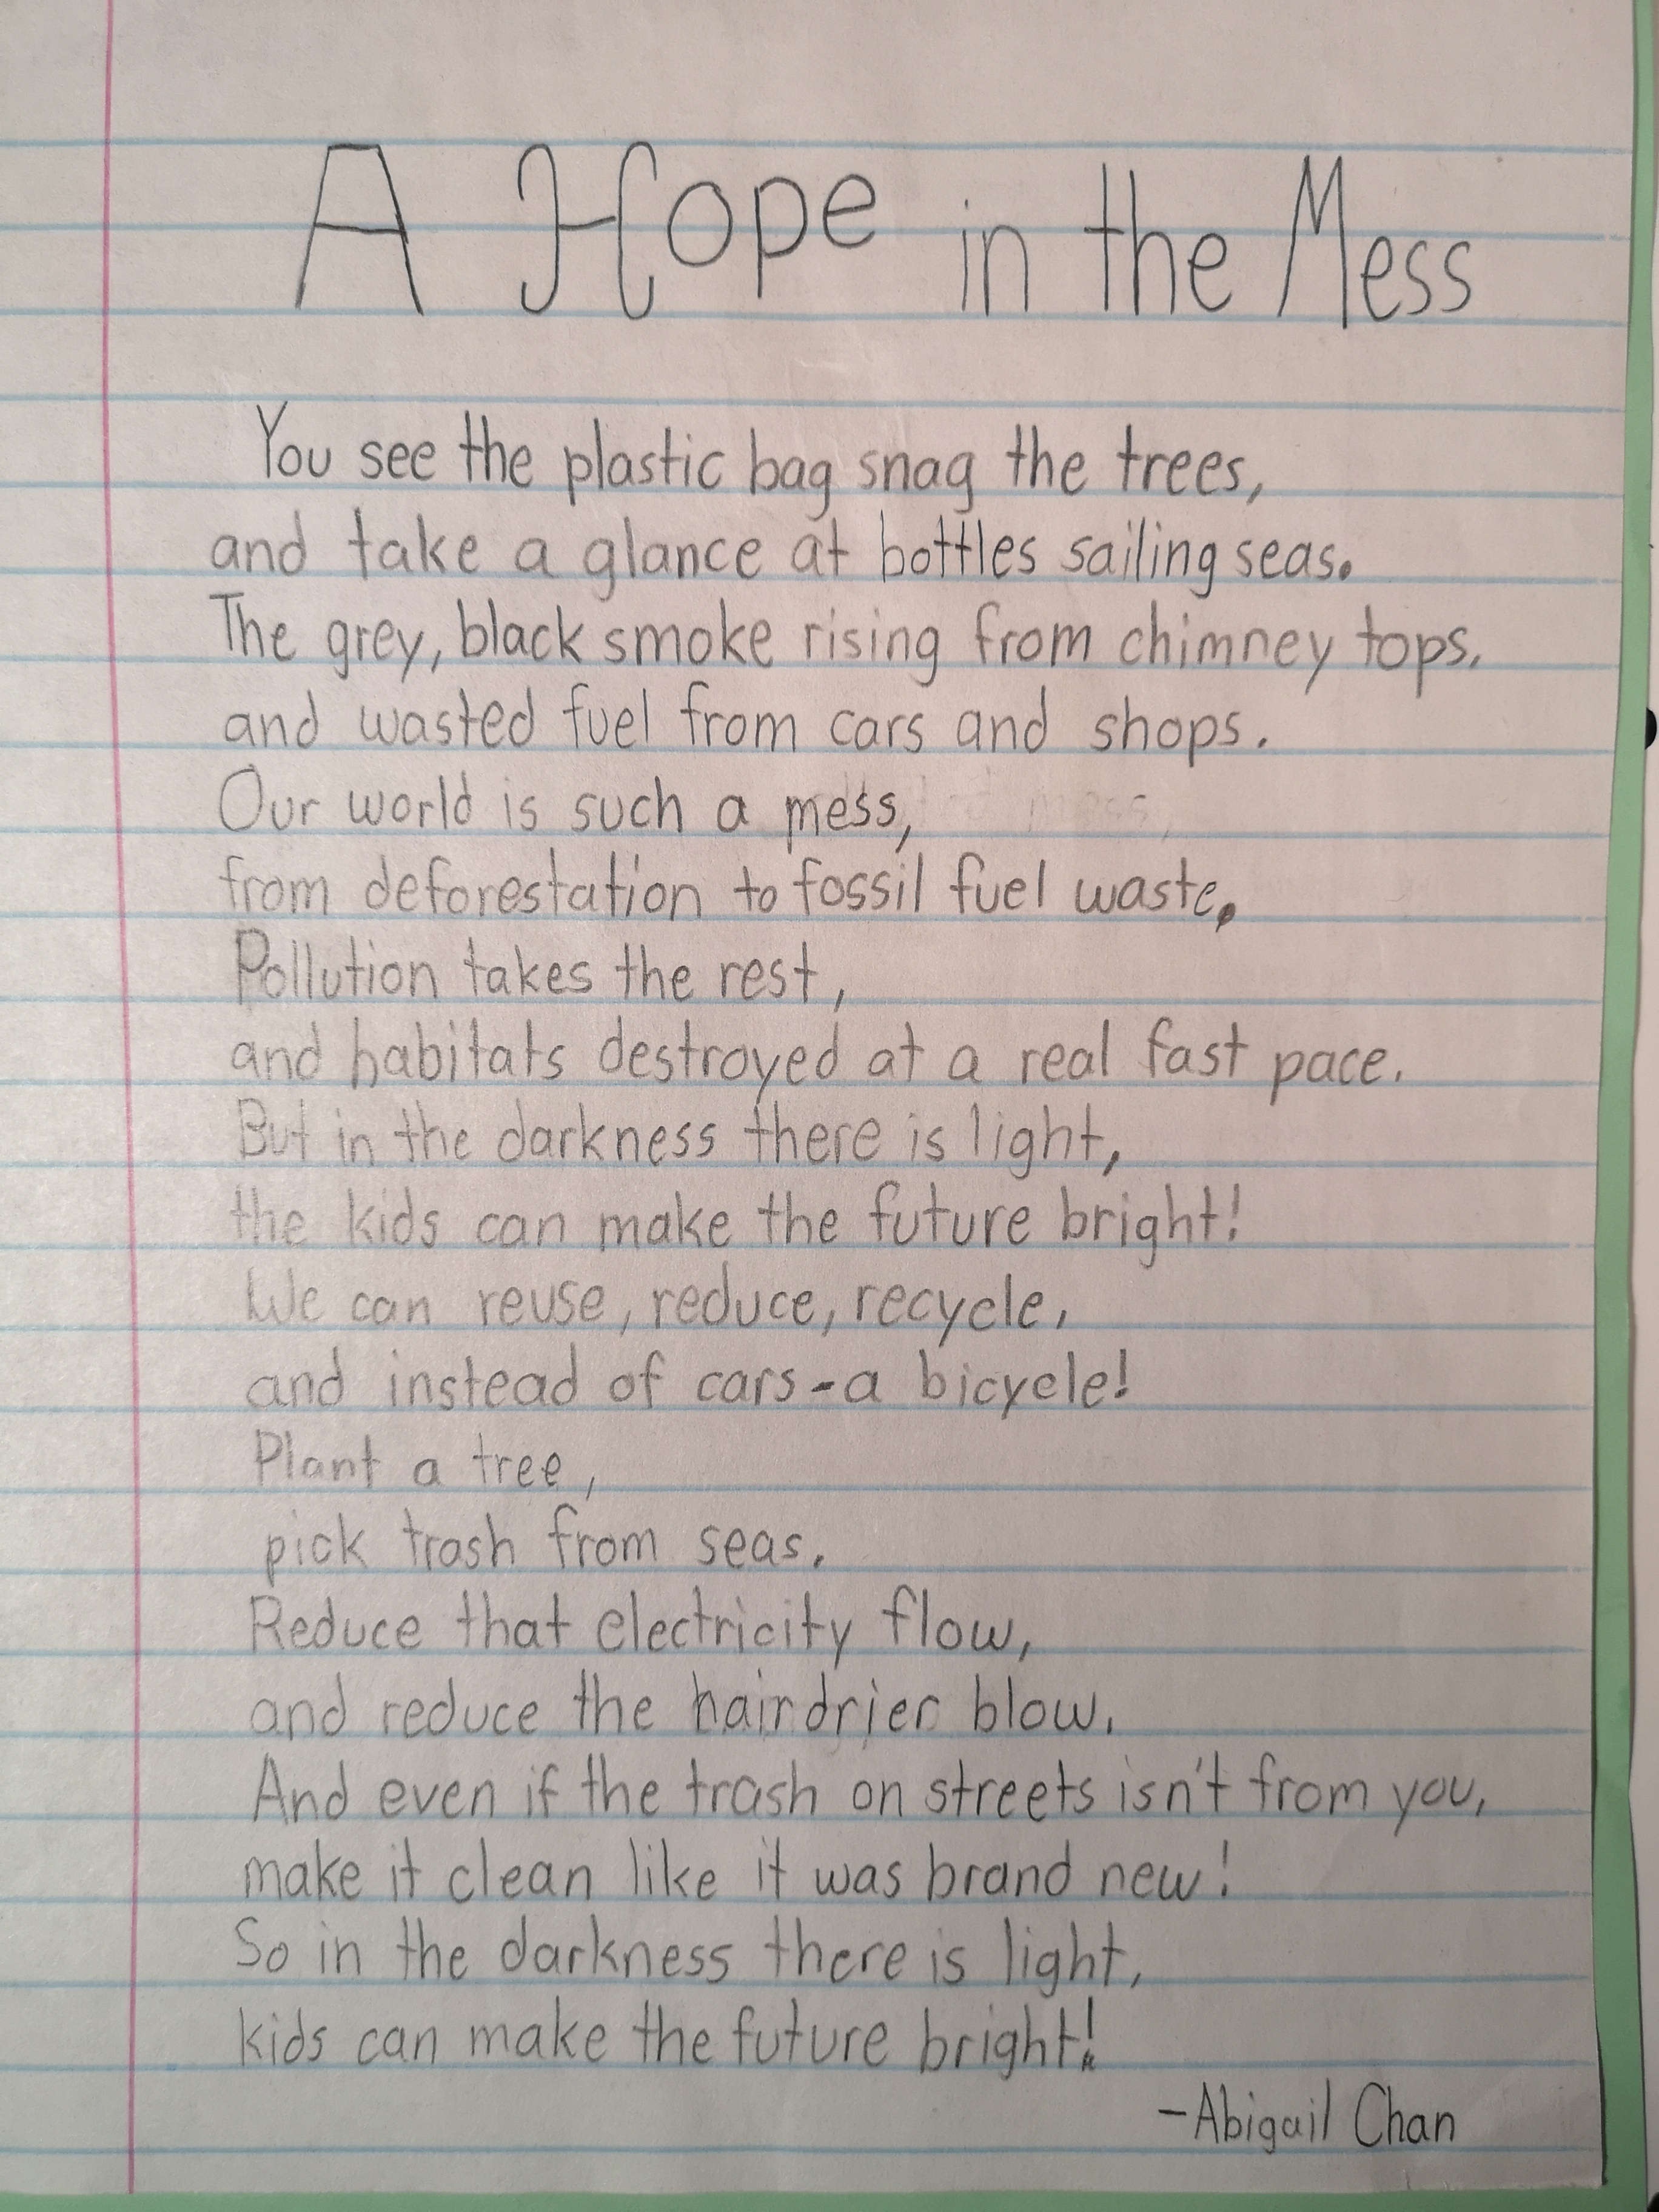 A Hope in the Mess
You see the plastic bag snag the trees,
and take a glance at bottles sailing seas.
The grey, black smoke rising from chimney tops,
and wasted fuel from cars and shops.
Our world is such a mess,
from deforestation to fossil fuel waste.
Pollution takes the rest,
and habitats destroyed at a real fast pace.
But in the darkness there is light,
the kids can make the future bright!
We can reuse, reduce, recycle,
and instead of cars-a bicycle!
Plant a tree,
pick trash from seas.
Reduce that electricity flow,
and reduce the hairdrier blow.
And even if the trash on streets isn't from you,
make it clean like it was brand new!
So in the darkness there is light,
kids can make the future bright!
-Abigail Chan